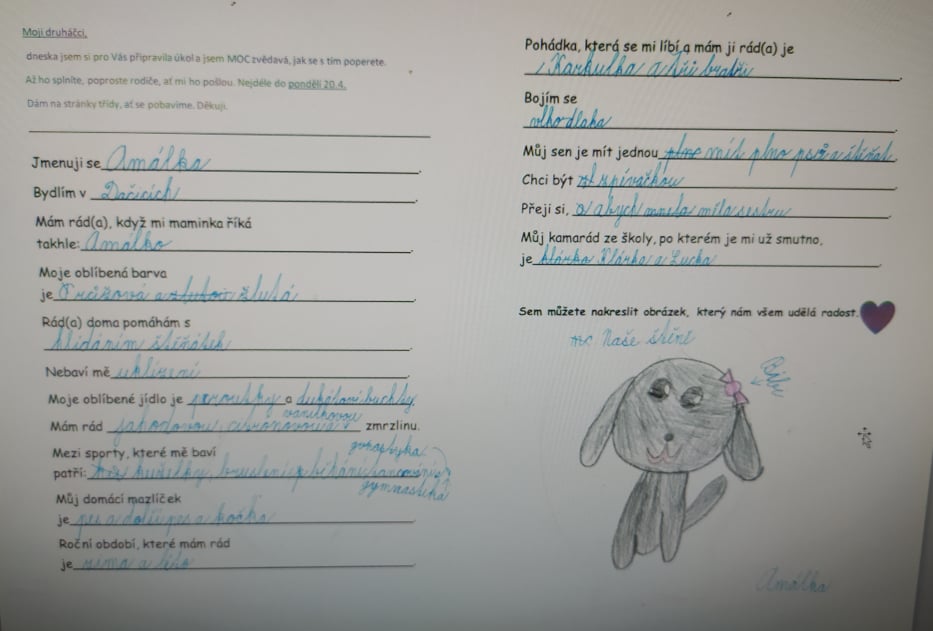 Moji druháčci,
dneska jsem si pro Vás připravila úkol a jsem MOC zvědavá, jak se s tím poperete.
Až ho splníte, poproste rodiče, ať mi ho pošlou. Nejdéle do pondělí 20.4.
Dám na stránky třídy, ať se pobavíme. Děkuji.
Jmenuji se Amálka
Bydlím v Dačicích.
Mám rád(a), když mi maminka říká
takhle: Amálko.
Moje oblíbená barva
je Oružová a žlutá.
Rád(a) doma pomáhám s
hlídáním štěňátek.
Nebaví mě uklízení.
Moje oblíbené jídlo je a dukátové buchty.
vanilkovou
Mám rád jahodovou, citrónovou a zmrzlinu.
Mezi sporty, které mě baví
patří: kuželky, bruslení, běhání, tancování
gymnastika
Můj domácí mazlíček
je pes a další pes a kočka.
Roční období, které mám rád
je zima a léto.
Pohádka, která se mi líbí a mám ji rád(a) je
Karkulka a tři bratři.
Bojím se
vlkodlaka.
Můj sen je mít jednou mít plno psů a štěňat.
Chci být zpívačkou.
Přeji si, abych měla sestru.
Můj kamarád ze školy, po kterém je mi už smutno,
je Klárka a Lucka.
Sem můžete nakreslit obrázek, který nám všem udělá radost.
Naše štěně
Amálka